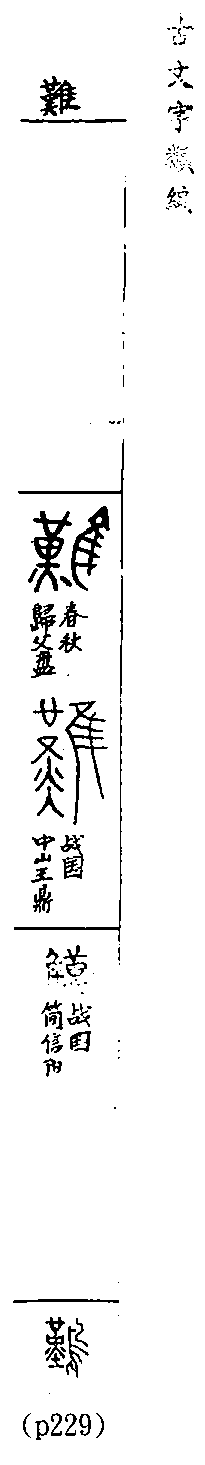 古文字類編
難
春秋
歸父盤
战国
中山王鼎
战国
简信阳
(p229)